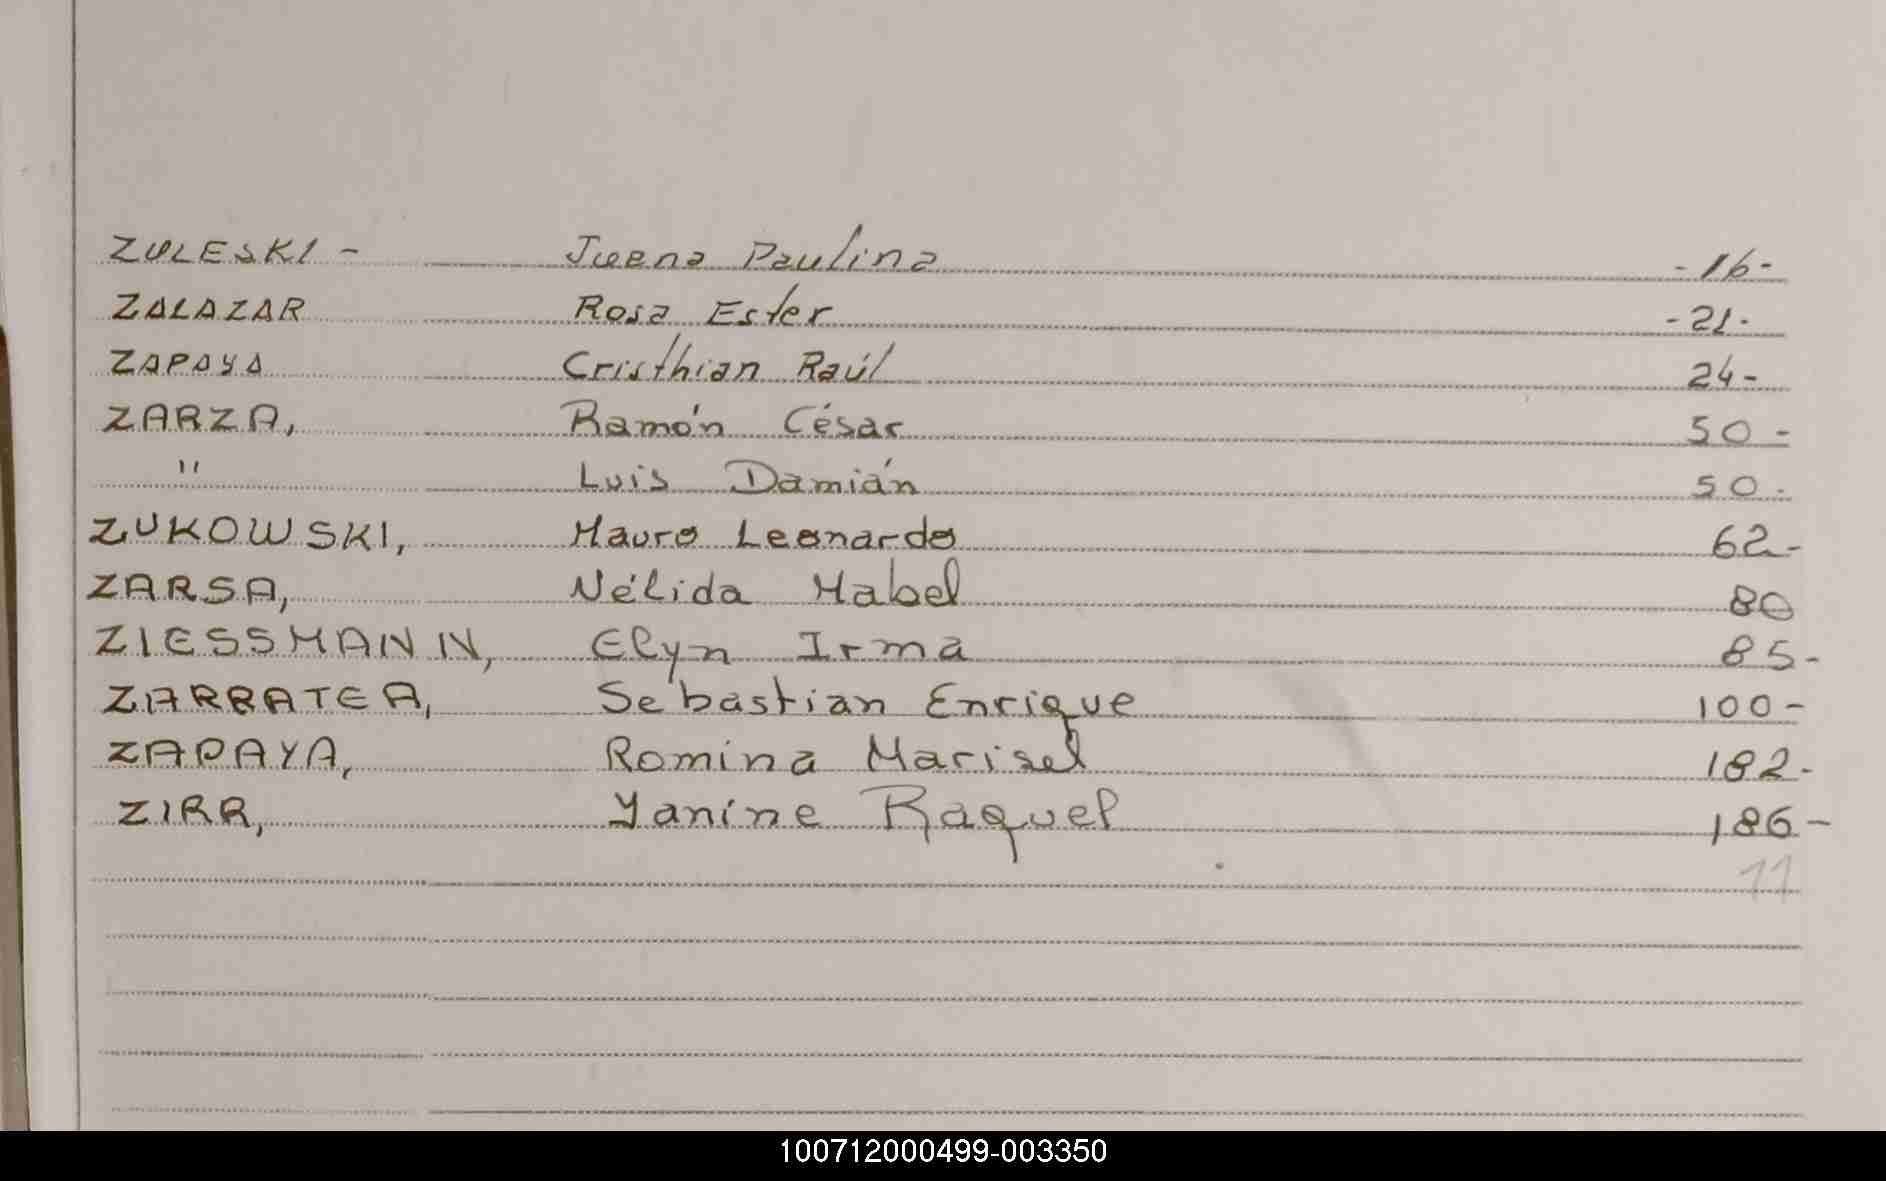 ZULESKI - Juana Paulina -16-
ZALAZAR Rosa Ester -21-
ZAPAYA Cristhian Raúl 24-
ZARZA, Ramón César 50-
" Luis Damián 50-
ZUKOWSKI, Mauro Leonardo 62-
ZARSA, Nélida Mabel 80
ZIESSMANN, Elyn Irma 85-
ZARRATEA, Sebastian Enrique 100-
ZAPAYA, Romina Marisel 182-
ZIRR, Yanine Raquel 186-
11
100712000499-003350